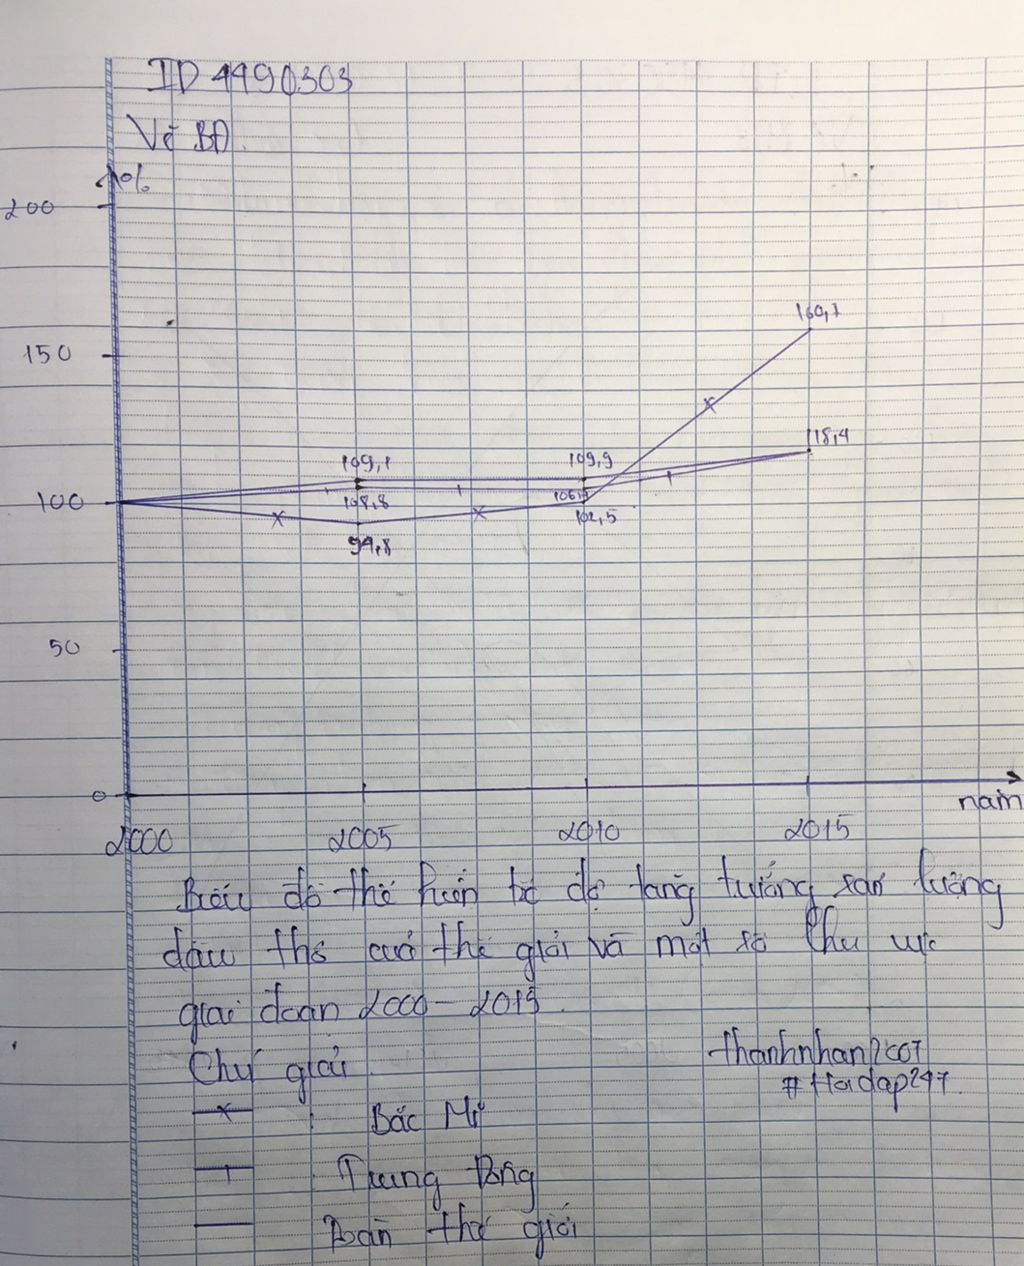 ID 4490303
Vẽ BĐ.
%
200
160,7
150
118,4
109,1
109,9
100
108,8
102,5
94,8
50
0
năm
2000 2005 2010 2015
Biểu đồ thể hiện tốc độ tăng trưởng sản lượng
dầu thô của thế giới và một số khu vực
giai đoạn 2000 - 2015.
Chú giải
thanhnhan2007
#Hoidap247
Bắc Mĩ
Trung Đông
Toàn thế giới